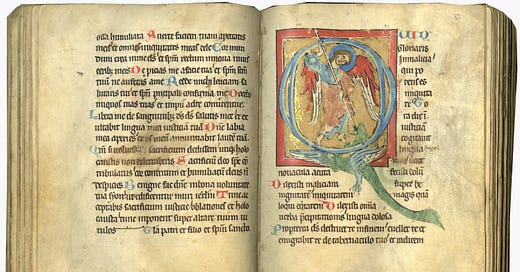 ossa humiliata Auerte faciem tuam apeccatis
meis et omnes iniquitates meas dele Cor mun
dum crea in me ds et spm rectum innoua inuis
meis Ne me afacie tua et spm scm
tuu ne auferas ame
taris tui et spu principali confirma me Docebo
iniquos uias tuas et impii adte conuertentur
Libera me de sanguinibz ds ds salutis mee et ex
ultabit lingua mea iusticiam tuam Dne labia
mea aperies et os meum annunciabit laude tua
Qm si uoluisses sacrificium dedissem utiq holo
caustis non delectaberis Sacrificiu deo sps co
tribulatus cor contritum et humiliatu ds n
despicies Benigne fac dne inbona uoluntate
tua syon ut edificentur muri ierlm Tunc ac
ceptabis sacrificium iusticie oblationes et holo
causta tunc imponent super altare tuum ui
tulos Gla patri et filio et spui sancto
UID
Gloriaris
inmalicia
qui po
tens es
iniquita
te To
ta die in
iusticia
cogitauit
lingua
nouacula acuta fecisti
Dilexisti maliciam super be
nignitate iniquitatem magis qua
loqui equitatem Dilexisti omia
uerba precipitationis lingua dolosa
Propterea ds destruet te infinem euellet te et
emigrabit te de tabernaculo tuo et radicem